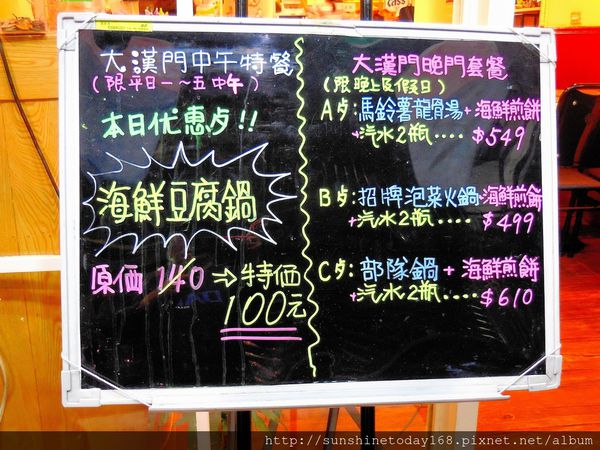 大漢門中午特餐
(限平日一~五中午)
本日优惠卢!!
海鮮豆腐鍋
原価 140 ⇒ 特価
100元
大漢門晚門套餐
(限晚上及假日)
A卢: 馬鈴薯龍骨湯+海鮮煎餅
+汽水2瓶.... $549
B卢: 招牌泡菜火鍋+海鮮煎餅
+汽水2瓶.... $499
C卢: 部隊鍋 + 海鮮煎餅
+汽水2瓶.... $610
http://sunshinetoday168.pixnet.net/album